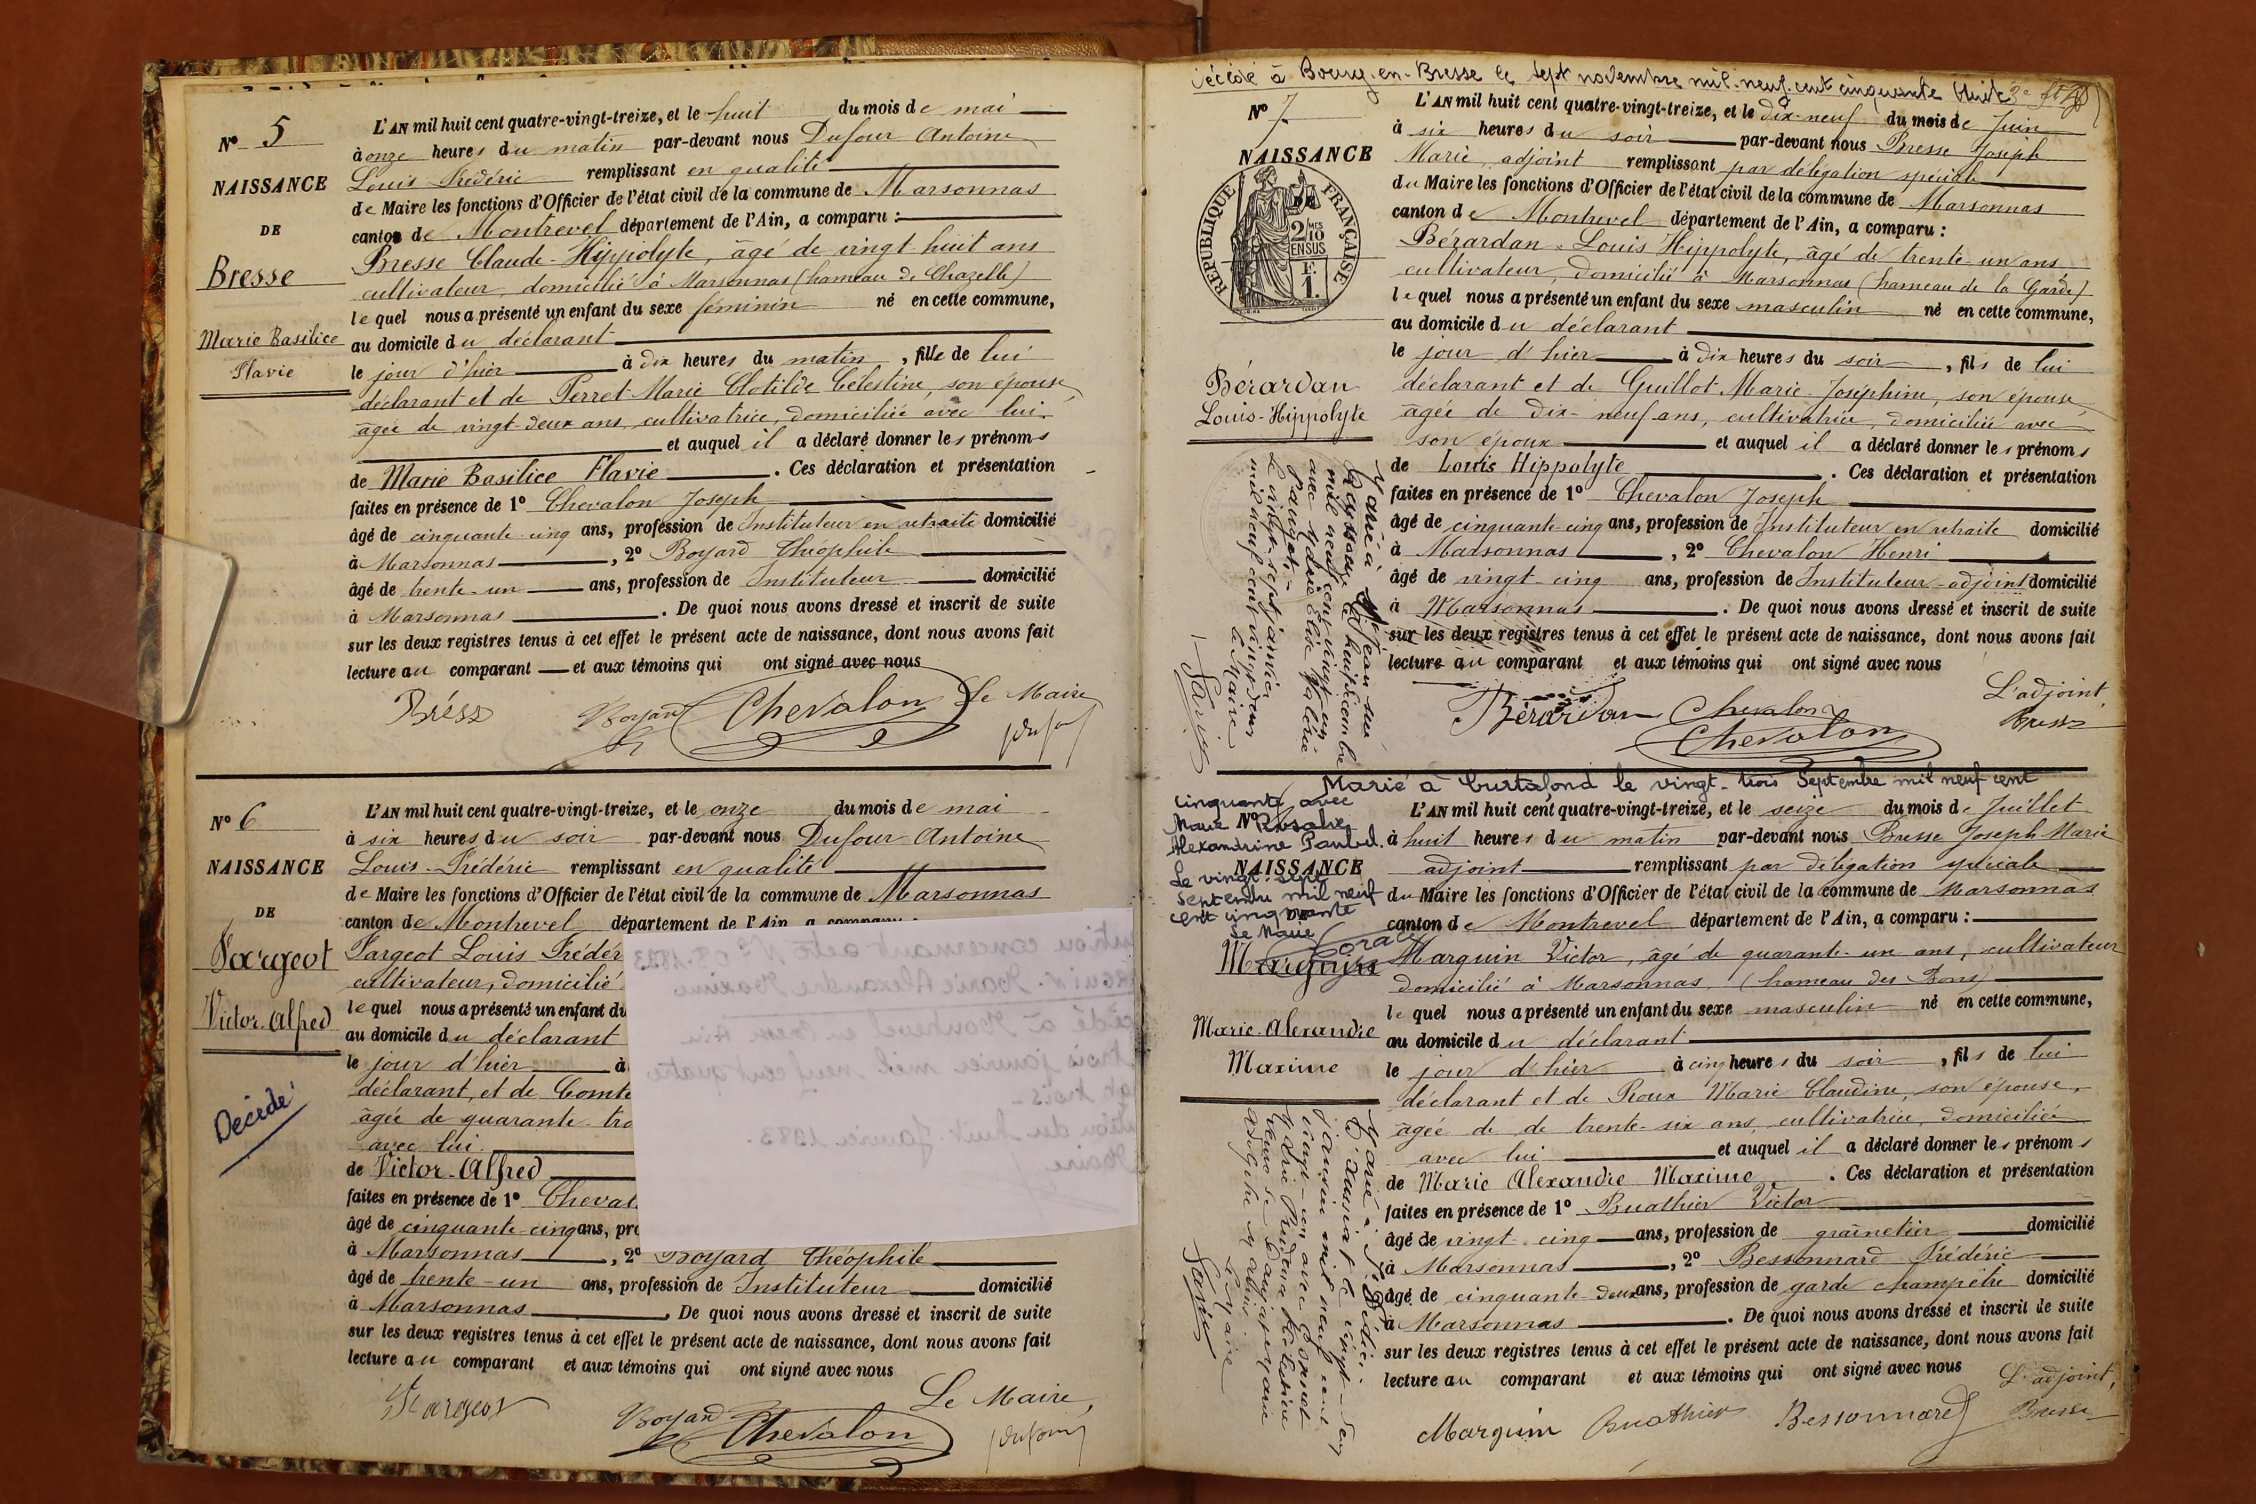 N° 5
NAISSANCE
DE
Bresse
Marie Basilice
Flavie
L'AN mil huit cent quatre-vingt-treize, et le huit du mois de mai
à onze heures du matin par-devant nous Dufour Antoine
Louis-Frédéric remplissant en qualité
de Maire les fonctions d'Officier de l'état civil de la commune de Marsonnas
canton de Montrevel département de l'Ain, a comparu :
Bresse Claude-Hippolyte, âgé de vingt-huit ans
cultivateur, domicilié à Marsonnas (hameau de Chazelle)
lequel nous a présenté un enfant du sexe féminin né en cette commune,
au domicile du déclarant
le jour d'hier à dix heures du matin, fille de lui
déclarant et de Perret Marie Clotilde Célestine, son épouse,
âgée de vingt-deux ans, cultivatrice, domiciliée avec lui
et auquel il a déclaré donner les prénoms
de Marie Basilice Flavie. Ces déclaration et présentation
faites en présence de 1° Chevalon Joseph
âgé de cinquante-cinq ans, profession de Instituteur en retraite domicilié
à Marsonnas, 2° Boyard Théophile
âgé de trente-un ans, profession de Instituteur domicilié
à Marsonnas. De quoi nous avons dressé et inscrit de suite
sur les deux registres tenus à cet effet le présent acte de naissance, dont nous avons fait
lecture au comparant et aux témoins qui ont signé avec nous
Le Maire
Bress Boyard Chevalon Dufour
N° 6
NAISSANCE
DE
Fargeot
Victor-Alfred
Décédé
L'AN mil huit cent quatre-vingt-treize, et le onze du mois de mai
à six heures du soir par-devant nous Dufour Antoine
Louis-Frédéric remplissant en qualité
de Maire les fonctions d'Officier de l'état civil de la commune de Marsonnas
canton de Montrevel département de l'Ain, a comparu :
Fargeot Louis Frédér
cultivateur, domicilié
lequel nous a présenté un enfant du
au domicile du déclarant
le jour d'hier à
déclarant, et de Comte
âgée de quarante-tro
avec lui
de Victor-Alfred
faites en présence de 1° Cheval
âgé de cinquante-cinq ans, pro
à Marsonnas, 2° Boyard Théophile
âgé de trente-un ans, profession de Instituteur domicilié
à Marsonnas. De quoi nous avons dressé et inscrit de suite
sur les deux registres tenus à cet effet le présent acte de naissance, dont nous avons fait
lecture au comparant et aux témoins qui ont signé avec nous
Le Maire,
Fargeot Boyard Chevalon Dufour
Décédé à Bourg-en-Bresse le sept novembre mil-neuf-cent cinquante huit
N° 7
NAISSANCE
REPUBLIQUE FRANÇAISE
2/10 EN SUS
F. 1.
Bérardan
Louis-Hippolyte
L'AN mil huit cent quatre-vingt-treize, et le dix-neuf du mois de Juin
à six heures du soir par-devant nous Bresse Joseph
Marie, adjoint remplissant par délégation spéciale
du Maire les fonctions d'Officier de l'état civil de la commune de Marsonnas
canton de Montrevel département de l'Ain, a comparu :
Bérardan Louis Hippolyte, âgé de trente-un ans
cultivateur, domicilié à Marsonnas (hameau de la Garde)
lequel nous a présenté un enfant du sexe masculin né en cette commune,
au domicile du déclarant
le jour d'hier à dix heures du soir, fils de lui
déclarant et de Guillot Marie-Joséphine, son épouse
âgée de dix-neuf ans, cultivatrice, domiciliée avec
son époux et auquel il a déclaré donner les prénoms
de Louis Hippolyte. Ces déclaration et présentation
faites en présence de 1° Chevalon Joseph
âgé de cinquante-cinq ans, profession de Instituteur en retraite domicilié
à Marsonnas, 2° Chevalon Henri
âgé de vingt-cinq ans, profession de Instituteur-adjoint domicilié
à Marsonnas. De quoi nous avons dressé et inscrit de suite
sur les deux registres tenus à cet effet le présent acte de naissance, dont nous avons fait
lecture au comparant et aux témoins qui ont signé avec nous
L'adjoint,
Bérardan Chevalon Bresse
Chevalon
Marié à St Jean-sur-
Reyssouze le huit décembre
mil neuf cent vingt-un
avec Marie Elise
Le vingt-sept janvier
mil neuf cent vingt-deux
Le Maire
Marié à Curtafond le vingt-trois Septembre mil neuf cent
cinquante avec
Marie Rosalie
Alexandrine Paubel.
Le vingt-sept
Septembre mil neuf
cent cinquante
Le Maire
N°
NAISSANCE
Marguin
Marie-Alexandre
Maxime
L'AN mil huit cent quatre-vingt-treize, et le seize du mois de Juillet
à huit heures du matin par-devant nous Bresse Joseph Marie
adjoint remplissant par délégation spéciale
du Maire les fonctions d'Officier de l'état civil de la commune de Marsonnas
canton de Montrevel département de l'Ain, a comparu :
Marguin Victor, âgé de quarante-un ans, cultivateur
domicilié à Marsonnas, (hameau des Bons)
lequel nous a présenté un enfant du sexe masculin né en cette commune,
au domicile du déclarant
le jour d'hier à cinq heures du soir, fils de lui
déclarant et de Roux Marie Claudine, son épouse,
âgée de de trente-six ans, cultivatrice, domiciliée
avec lui et auquel il a déclaré donner les prénoms
de Marie Alexandre Maxime. Ces déclaration et présentation
faites en présence de 1° Buathier Victor
âgé de vingt-cinq ans, profession de grainetier domicilié
à Marsonnas, 2° Bessonnard Frédéric
âgé de cinquante-deux ans, profession de garde champêtre domicilié
à Marsonnas. De quoi nous avons dressé et inscrit de suite
sur les deux registres tenus à cet effet le présent acte de naissance, dont nous avons fait
lecture au comparant et aux témoins qui ont signé avec nous
L'adjoint,
Marguin Buathier Bessonnard Bresse
Marié à St Didier
d'Aussiat le vingt-six
janvier mil neuf cent
vingt-un avec
Le Maire